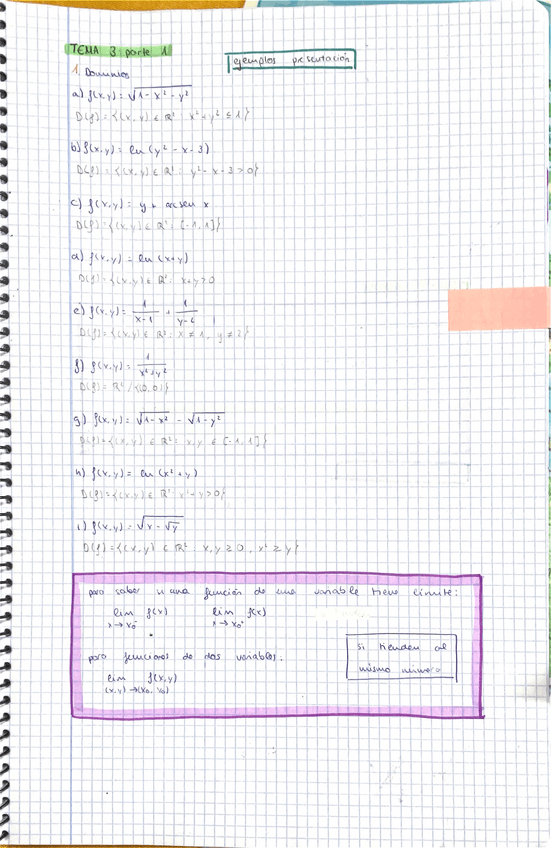 TEMA 3: parte 1
ejemplos presentación
1. Dominios
a) f(x,y) = √(1-x²-y²)
D(f) = {(x,y) ∈ ℝ²: x²+y² ≤ 1}
b) f(x,y) = ln (y² - x - 3)
D(f) = {(x,y) ∈ ℝ²: y² - x - 3 > 0}
c) f(x,y) = y + arcsen x
D(f) = {(x,y) ∈ ℝ²: [-1,1]}
d) f(x,y) = ln (x+y)
D(f) = {(x,y) ∈ ℝ²: x+y > 0
e) f(x,y) = 1/(x-1) + 1/(y-2)
D(f) = {(x,y) ∈ ℝ²: x ≠ 1, y ≠ 2}
f) f(x,y) = 1/(x²+y²)
D(f) = ℝ² / {(0,0)}
g) f(x,y) = √(1-x²) - √(1-y²)
D(f) = {(x,y) ∈ ℝ²: x,y ∈ [-1,1]}
h) f(x,y) = ln (x² + y)
D(f) = {(x,y) ∈ ℝ²: x² - y > 0}
i) f(x,y) = √(x - √y)
D(f) = {(x,y) ∈ ℝ²: x,y ≥ 0, x² ≥ y}
para saber si una función de una variable tiene límite:
lim f(x) lim f(x)
x→x₀⁻ x→x₀⁺
si tienden al
mismo número
para funciones de dos variables:
lim f(x,y)
(x,y)→(x₀,y₀)